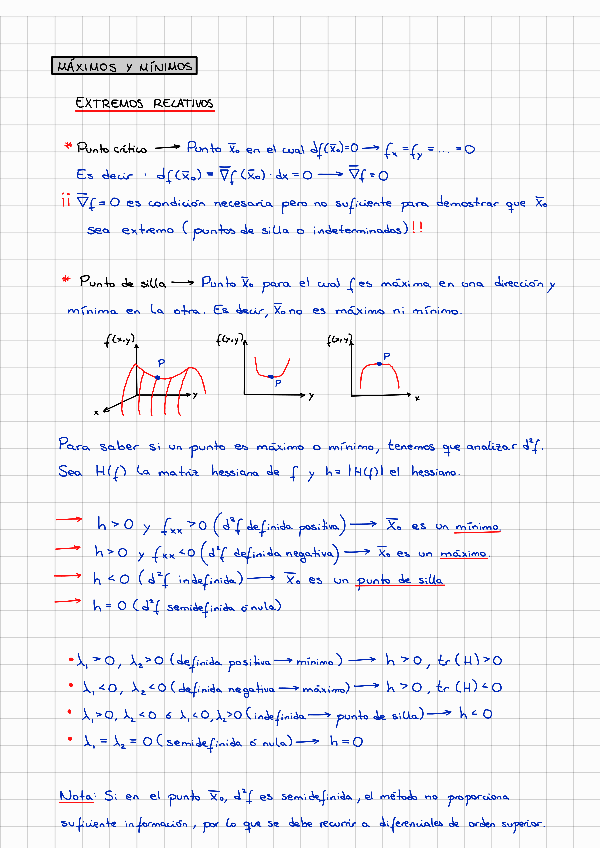 MÁXIMOS Y MÍNIMOS
EXTREMOS RELATIVOS
* Punto crítico → Punto x̄₀ en el cual df(x̄₀)=0 → fₓ = f_y = ... = 0
Es decir · df(x̄₀) = ∇̄f(x̄₀)·dx = 0 → ∇̄f = 0
¡¡ ∇̄f = 0 es condición necesaria pero no suficiente para demostrar que x̄₀
sea extremo (puntos de silla o indeterminados)!!
* Punto de silla → Punto x̄₀ para el cual f es máxima en una dirección y
mínima en la otra. Es decir, x̄₀ no es máximo ni mínimo.
f(x,y) f(x,y) f(x,y)
P P P
x y y x
Para saber si un punto es máximo o mínimo, tenemos que analizar d²f.
Sea H(f) la matriz hessiana de f y h = |H(f)| el hessiano.
→ h > 0 y fₓₓ > 0 (d²f definida positiva) → x̄₀ es un mínimo
→ h > 0 y fₓₓ < 0 (d²f definida negativa) → x̄₀ es un máximo.
→ h < 0 (d²f indefinida) → x̄₀ es un punto de silla
→ h = 0 (d²f semidefinida ó nula)
• λ₁ > 0, λ₂ > 0 (definida positiva → mínimo) → h > 0, tr(H) > 0
• λ₁ < 0, λ₂ < 0 (definida negativa → máximo) → h > 0, tr(H) < 0
• λ₁ > 0, λ₂ < 0 ó λ₁ < 0, λ₂ > 0 (indefinida → punto de silla) → h < 0
• λ₁ = λ₂ = 0 (semidefinida ó nula) → h = 0
Nota: Si en el punto x̄₀, d²f es semidefinida, el método no proporciona
suficiente información, por lo que se debe recurrir a diferenciales de orden superior.